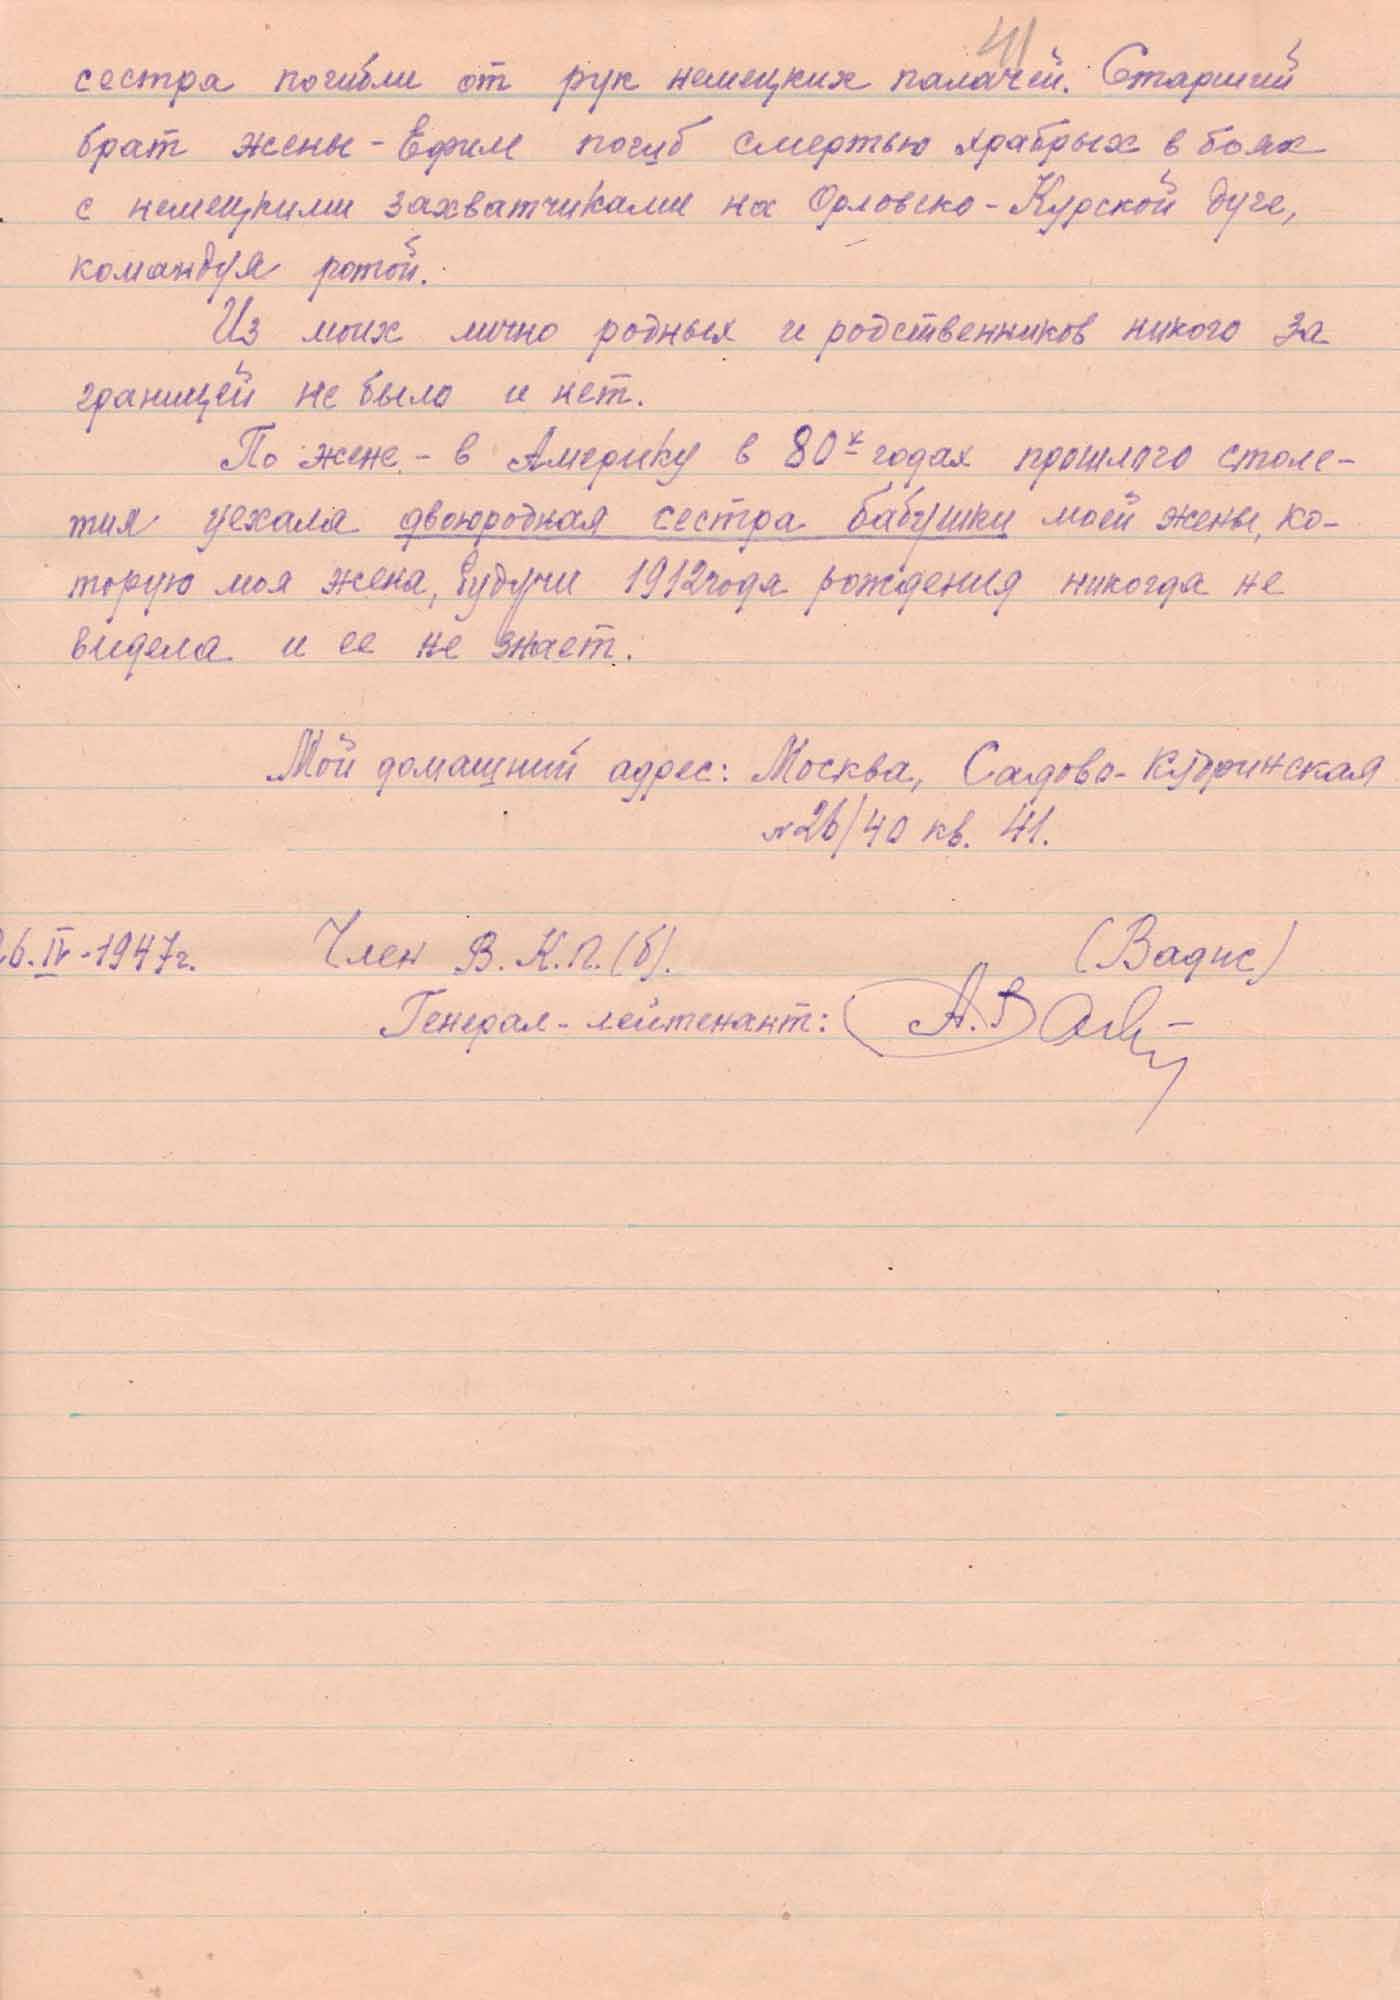 41
сестра погибли от рук немецких палачей. Старший
брат жены - Ефим погиб смертью храбрых в боях
с немецкими захватчиками на Орловско-Курской дуге,
командуя ротой.
Из моих лично родных и родственников никого за
границей не было и нет.
По жене - в Америку в 80х годах прошлого столе-
тия уехала двоюродная сестра бабушки моей жены, ко-
торую моя жена, будучи 1912 года рождения никогда не
видела и ее не знает.
Мой домашний адрес: Москва, Садово-Кудринская
№ 26/40 кв. 41.
26.IV-1947г. Член В.К.П.(б). (Вадис)
Генерал-лейтенант: А. Вадис